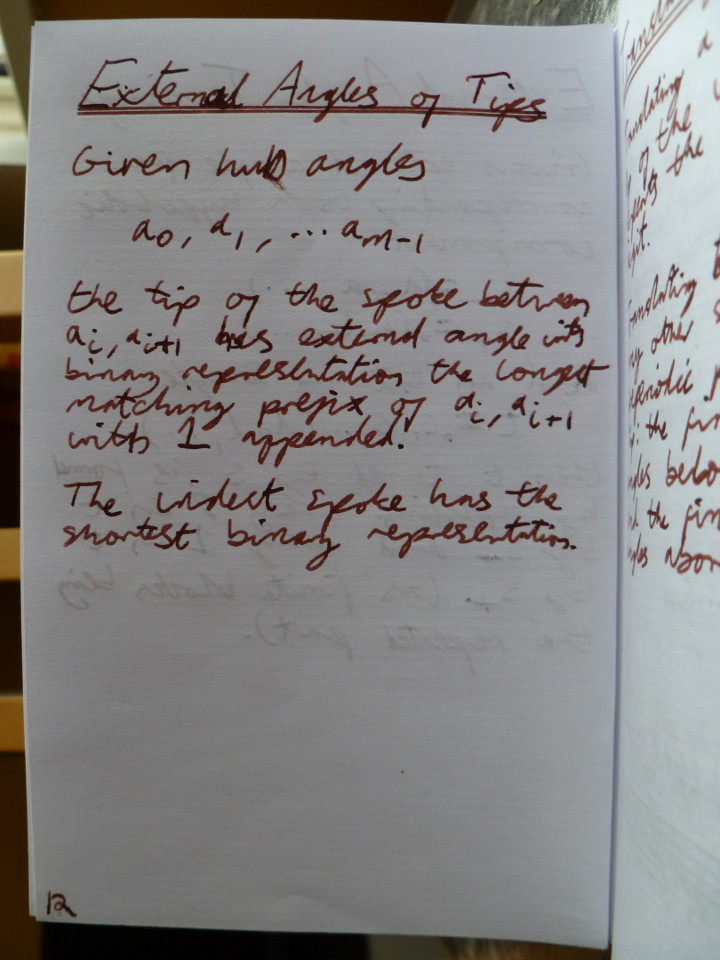 External Angles of Tips
Given hub angles
a0, a1, ... am-1
the tip of the spoke between
ai, ai+1 has external angle with
binary representation the longest
matching prefix of ai, ai+1
with 1 appended.
The widest spoke has the
shortest binary representation.
12
Translating a
of the
the
Translating
other
the